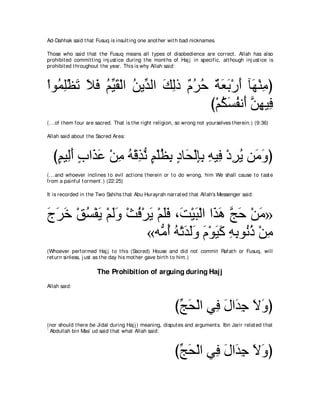 Ad-Dahhak said that Fusuq is insulting one another with bad nicknames.
Those who said that the Fusuq means all types of disobedience are correct. Allah has also
prohibited committing injustice during the months of Hajj in specific, although injustice is
prohibited throughout the year. This is why Allah said:
﴿مِنْهَآ أَرْبَعَةٌ حُرُمٌ ذَلِكَ الدِّينُ الْقَيِّمُ فَلاَ تَظْلِمُواْ
فِيهِنَّ أَنفُسَكُمْ﴾
(...of them four are sacred. That is the right religion, so wrong not yourselves therein.) (9:36)
Allah said about the Sacred Area:
﴿وَمَن يُرِدْ فِيهِ بِإِلْحَادٍ بِظُلْمٍ نُّذِقْهُ مِنْ عَذَابٍ أَلِيمٍ﴾
(...and whoever inclines to evil actions therein or to do wrong, him We shall cause to taste
from a painful torment.) (22:25)
It is recorded in the Two Sahihs that Abu Hurayrah narrated that Allah's Messenger said:
«مَنْ حَجَّ هَذَا الْبَيْتَ، فَلَمْ يَرْفُثْ وَلَمْ يَفْسُقْ خَرَجَ
مِنْ ذُنُوبِهِ كَيَوْمَ وَلَدَتْهُ أُمُّه»
(Whoever performed Hajj to this (Sacred) House and did not commit Rafath or Fusuq, will
return sinless, just as the day his mother gave birth to him.)
The Prohibition of arguing during Hajj
Allah said:
﴿وَلاَ جِدَالَ فِي الْحَجِّ﴾
(nor should there be Jidal during Hajj) meaning, disputes and arguments. Ibn Jarir related that
`Abdullah bin Mas`ud said that what Allah said:
﴿وَلاَ جِدَالَ فِي الْحَجِّ﴾